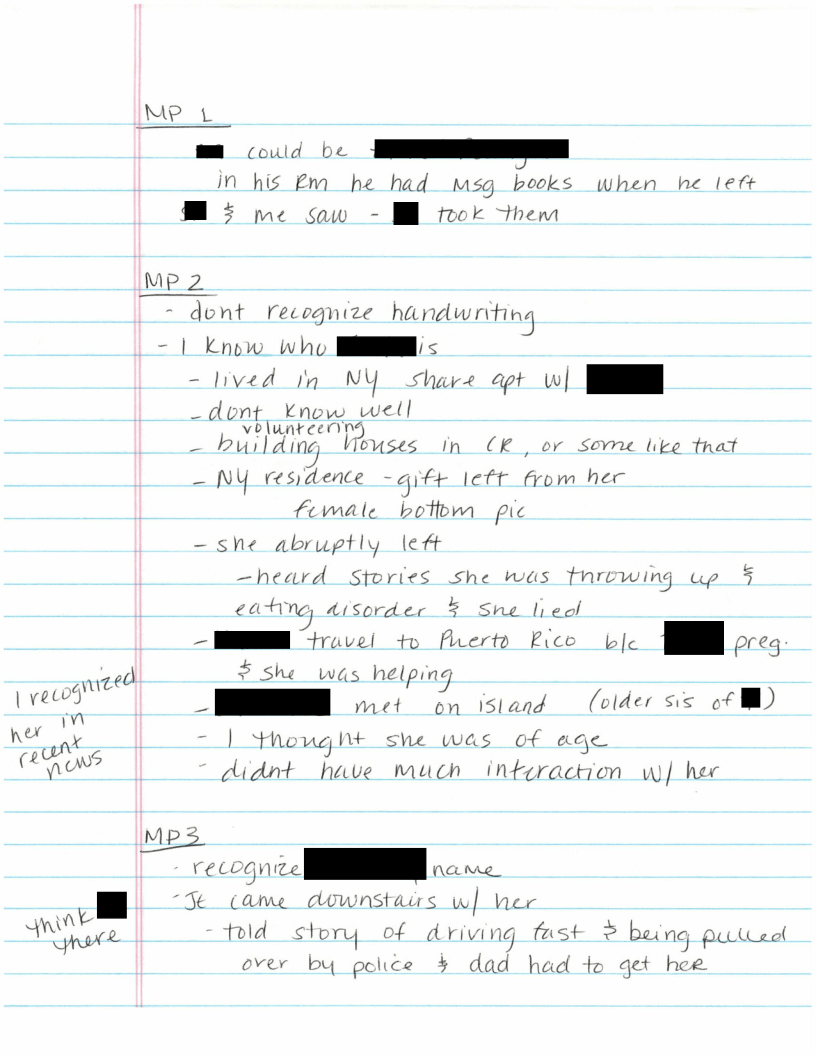 MP 1
could be
in his Rm he had Msg books when he left
& me saw - took them
MP 2
- dont recognize handwriting
- I know who is
- lived in NY share apt w/
- dont know well
volunteering
- building houses in CR, or some like that
- NY residence - gift left from her
female bottom pic
- she abruptly left
- heard stories she was throwing up &
eating disorder & she lied
- travel to Puerto Rico b/c preg.
& she was helping
I recognized
her in
recent
news
- met on island (older sis of )
- I thought she was of age
- didnt have much interaction w/ her
MP3
- recognize name
- JE came downstairs w/ her
think
there
- told story of driving fast & being pulled
over by police & dad had to get her